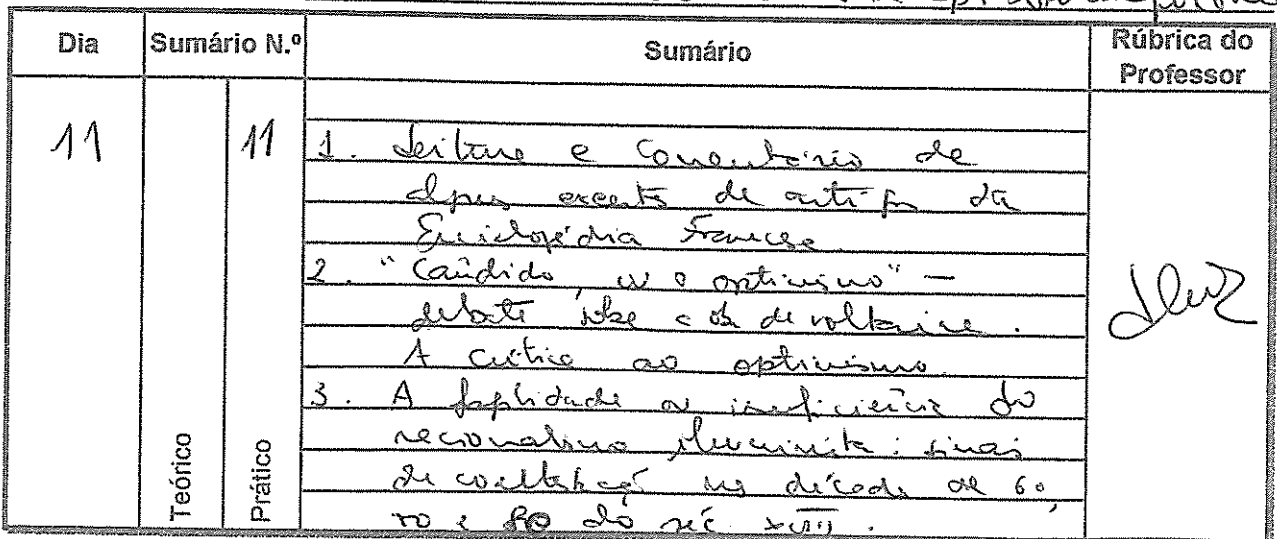 Dia Sumário N.º Sumário Rúbrica do Professor
11 11 1. Leitura e Comentário de
alguns excertos de artigos da
Enciclopédia Francesa
2. "Cândido, ou o optimismo" –
debate sobre a obra de Voltaire.
A crítica ao optimismo.
3. A fragilidade ou insuficiência do
racionalismo iluminista: sinais
de contestação na década de 60,
70 e 80 do séc. XVIII.
Teórico
Prático